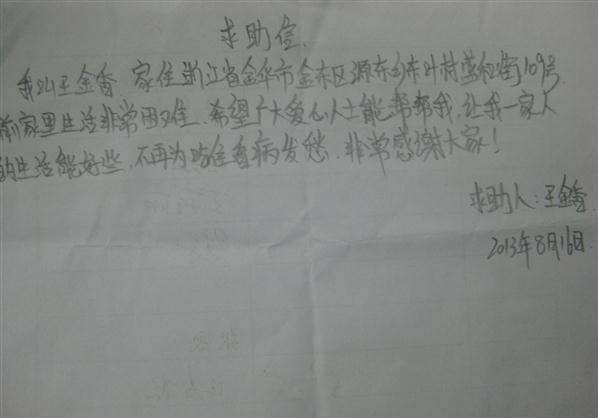 求助信
我叫王金香 家住浙江省金华市金东区源东乡东叶村蓝红街109号
前家里生活非常困难.希望广大爱心人士能帮帮我,让我一家人
的生活能好些,不再为 看病发愁.非常感谢大家!
求助人:王金香
2013年8月16日